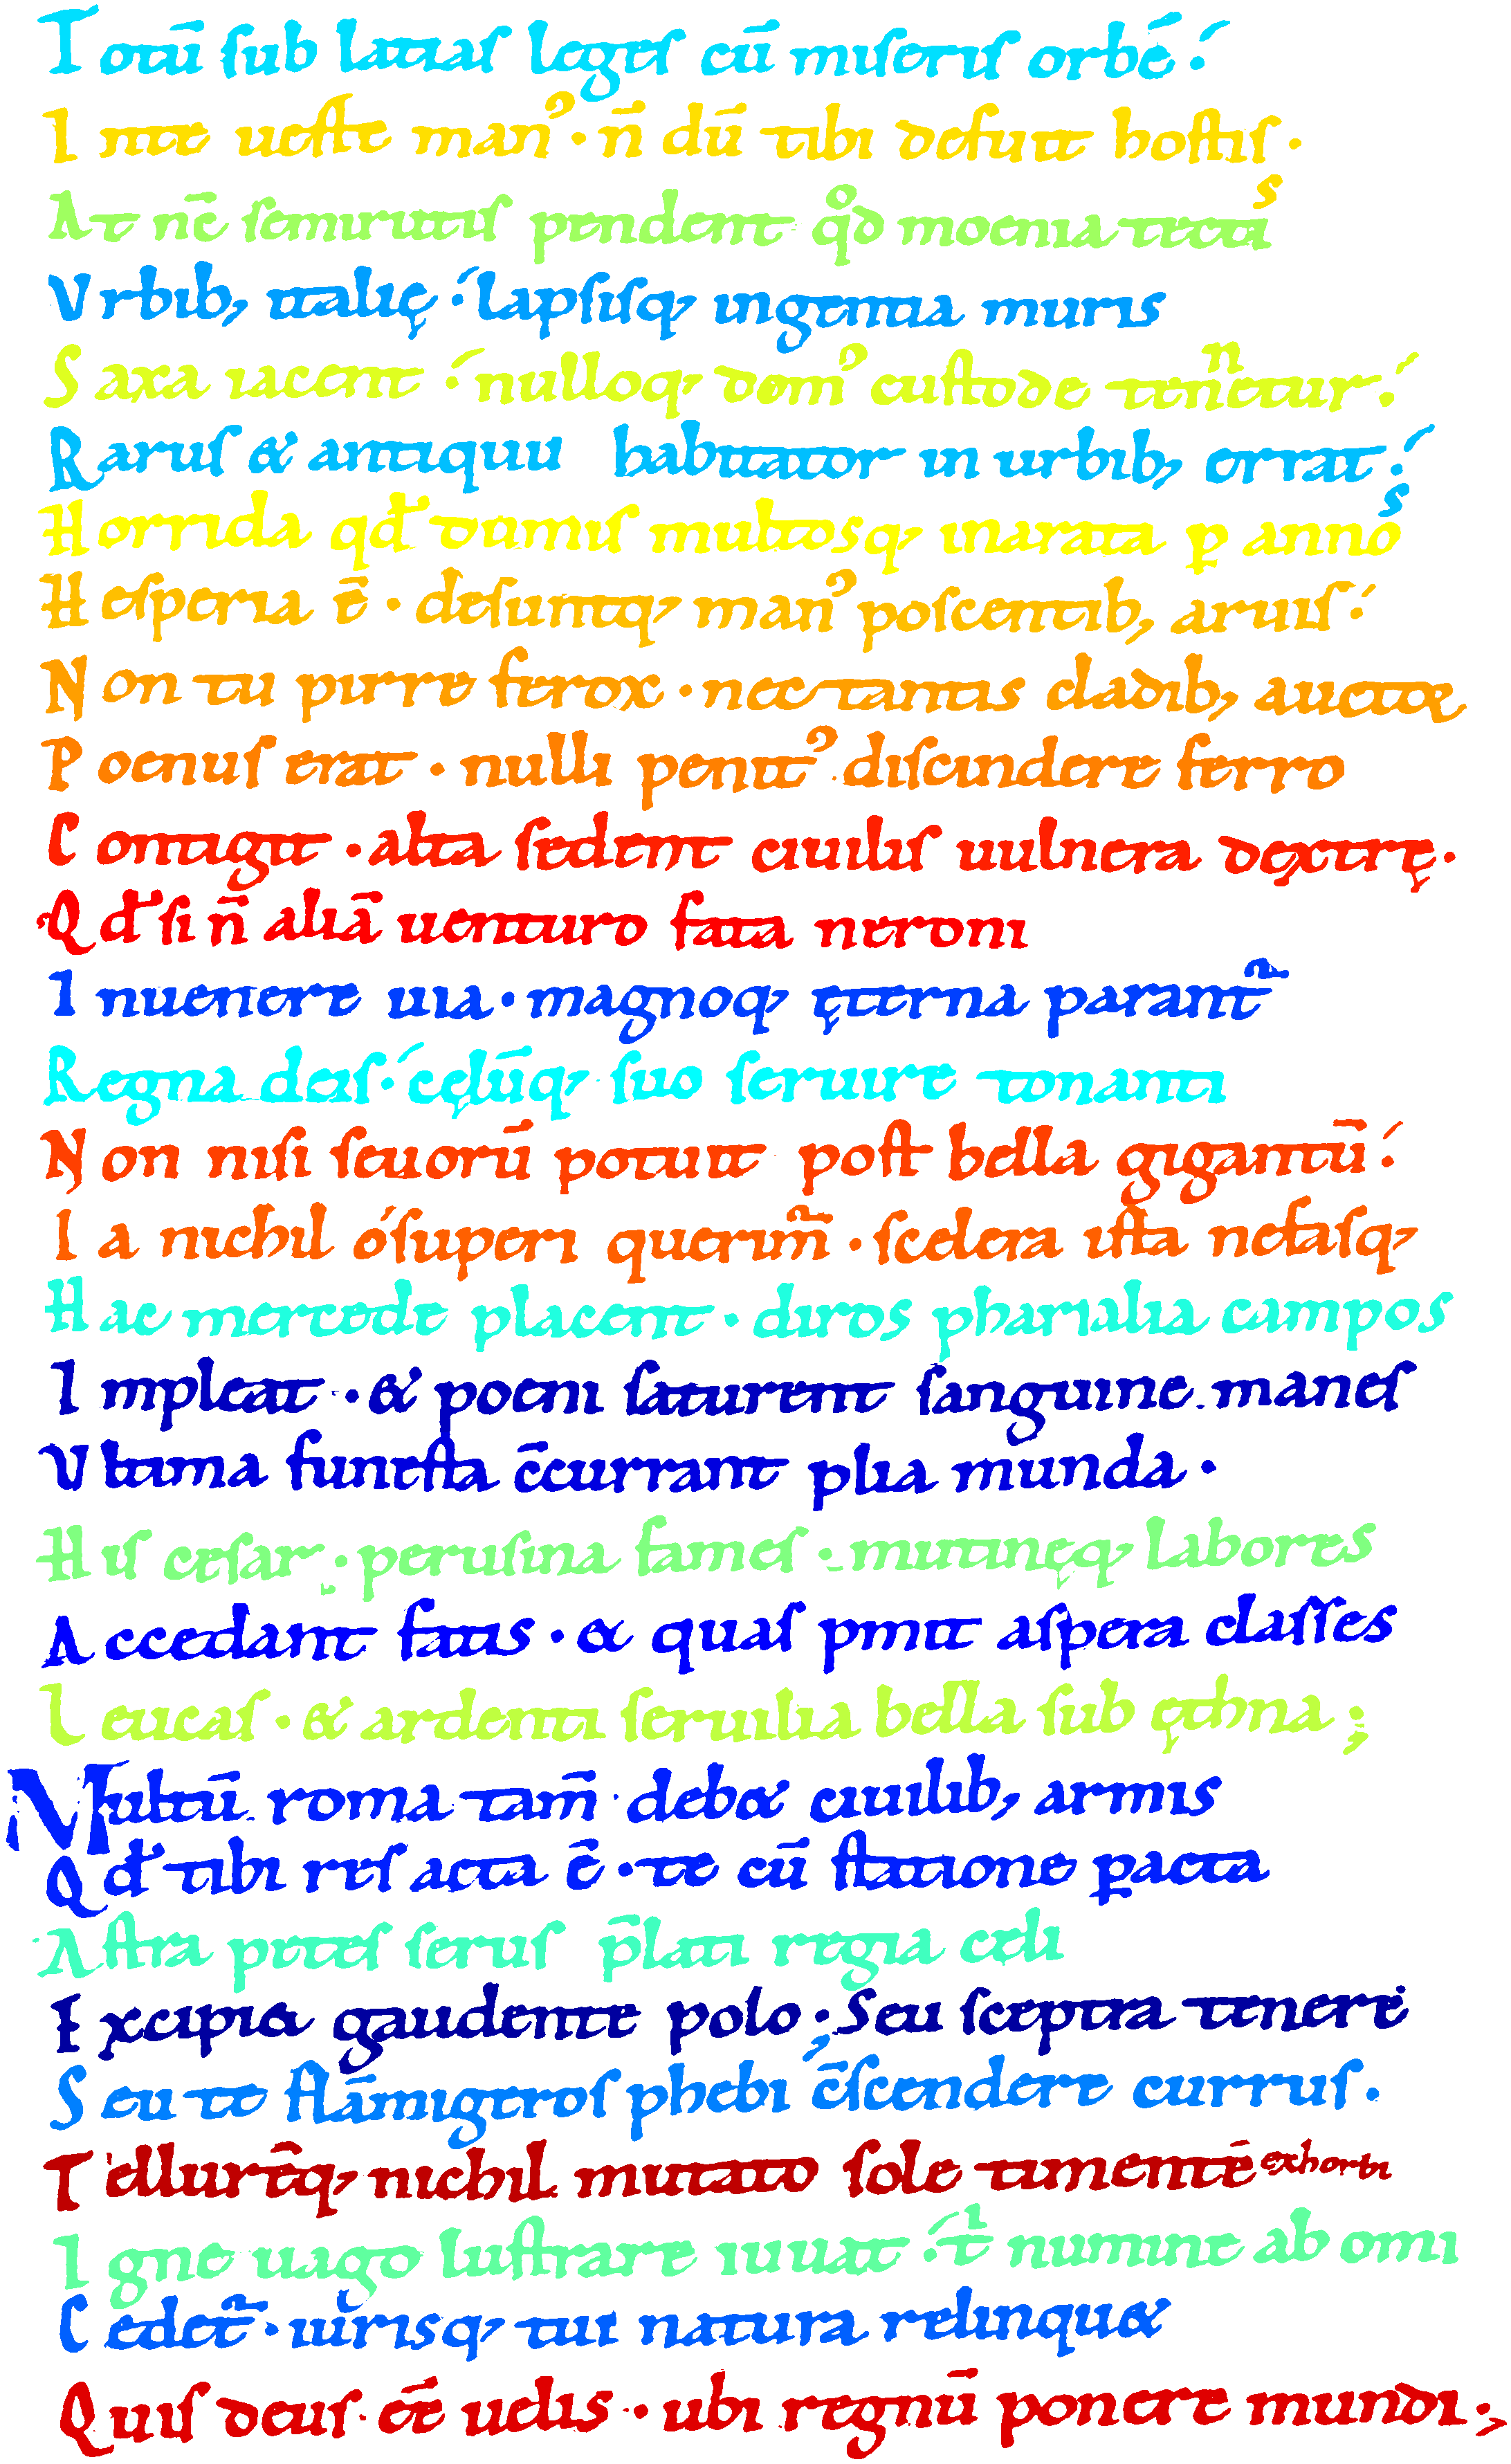 Totũ sub latias leges cũ miseris orbẽ:
In te ueste manꝰ · ñ dũ tibi defuit hostis ·
At nc̄ semirutis pendent qͦd moenia tectis
Vrbib; italię : lapsisq; ingentia muris
Saxa iacent : nulloq; domꝰ custode teñetur :
Rarus & antiquu habitator in urbib; errat :
Horrida qđ dumis multosq; inarata ꝑ annos
Hesperia ē · desuntq; manꝰ poscentib; aruis :
Non tu pirre ferox · nec tantis cladib; auctoꝛ
Poenus erat · nulli penitꝰ discindere ferro
Contigit · alta sedent ciuilis uulnera dextrę ·
Qđ si ñ aliā uenturo fata neroni
Inuenere uia · magnoq; ęterna parant᷑
Regna deis : cęlūq; suo seruire tonanti
Non nisi seuorū potuit post bella gigantū :
Ia nichil ó superi querim̃ · scelera ista nefasq;
Hac mercede placent · diros pharsalia campos
Impleat · & poeni saturent sanguine manes
Vltima funesta c̄currant plia munda ·
His cesar · perusina fames · mutinęq; labores
Accedant fatis · & quas pmit aspera classes
Leucas · & ardenti seruilia bella sub ęthna ;
Multū roma tam̃ deb& ciuilib; armis
Qđ tibi res acta ē · te cū statione ꝑacta
Astra petes serus p̄lati regia cęli
Excipi& gaudente polo · Seu sceptra tenere
Seu te flāmigeros phebi c̄scendere currus ·
Tellurēq; nichil mutato sole timentē exhorbi
Igne uago lustrare iuuat : t̵ numine ab omi
Cedet᷑ · iurisq; tui natura relinqu&
Quis deus eē uelis · ubi regnū ponere mundi ;